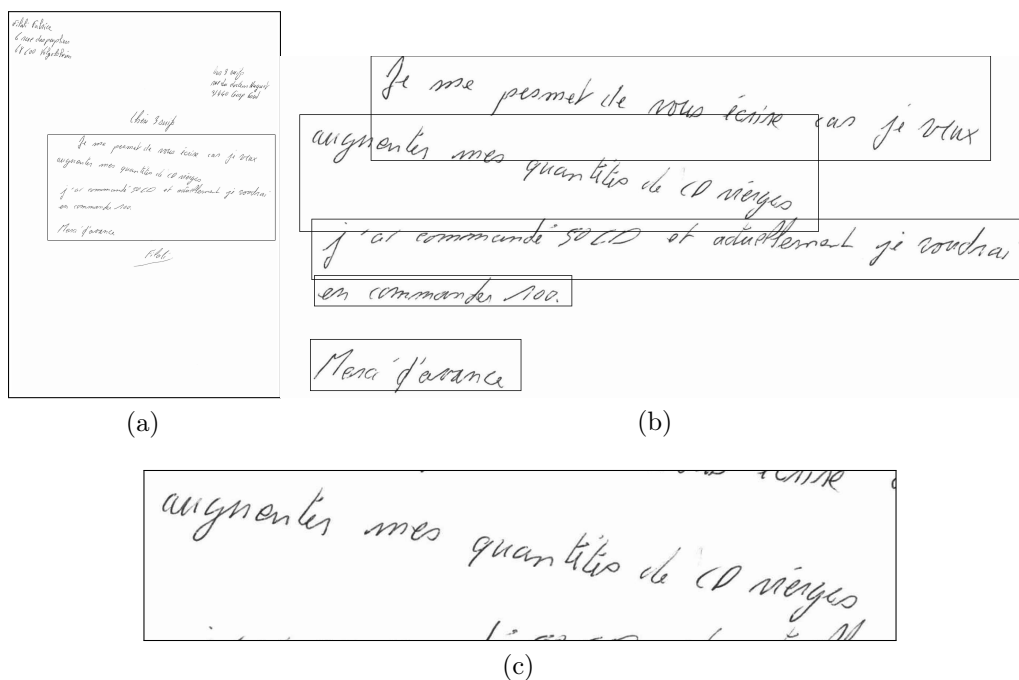 Je me permet de vous écrire car je veux
augmenter mes quantités de CD vierges
j'ai commandé 50 CD et actuellement je voudrai
en commander 100.
Merci d'avance
(a)
Je me permet de vous écrire car je veux
augmenter mes quantités de CD vierges
j'ai commandé 50 CD et actuellement je voudrai
en commander 100.
Merci d'avance
(b)
augmenter mes quantités de CD vierges
(c)